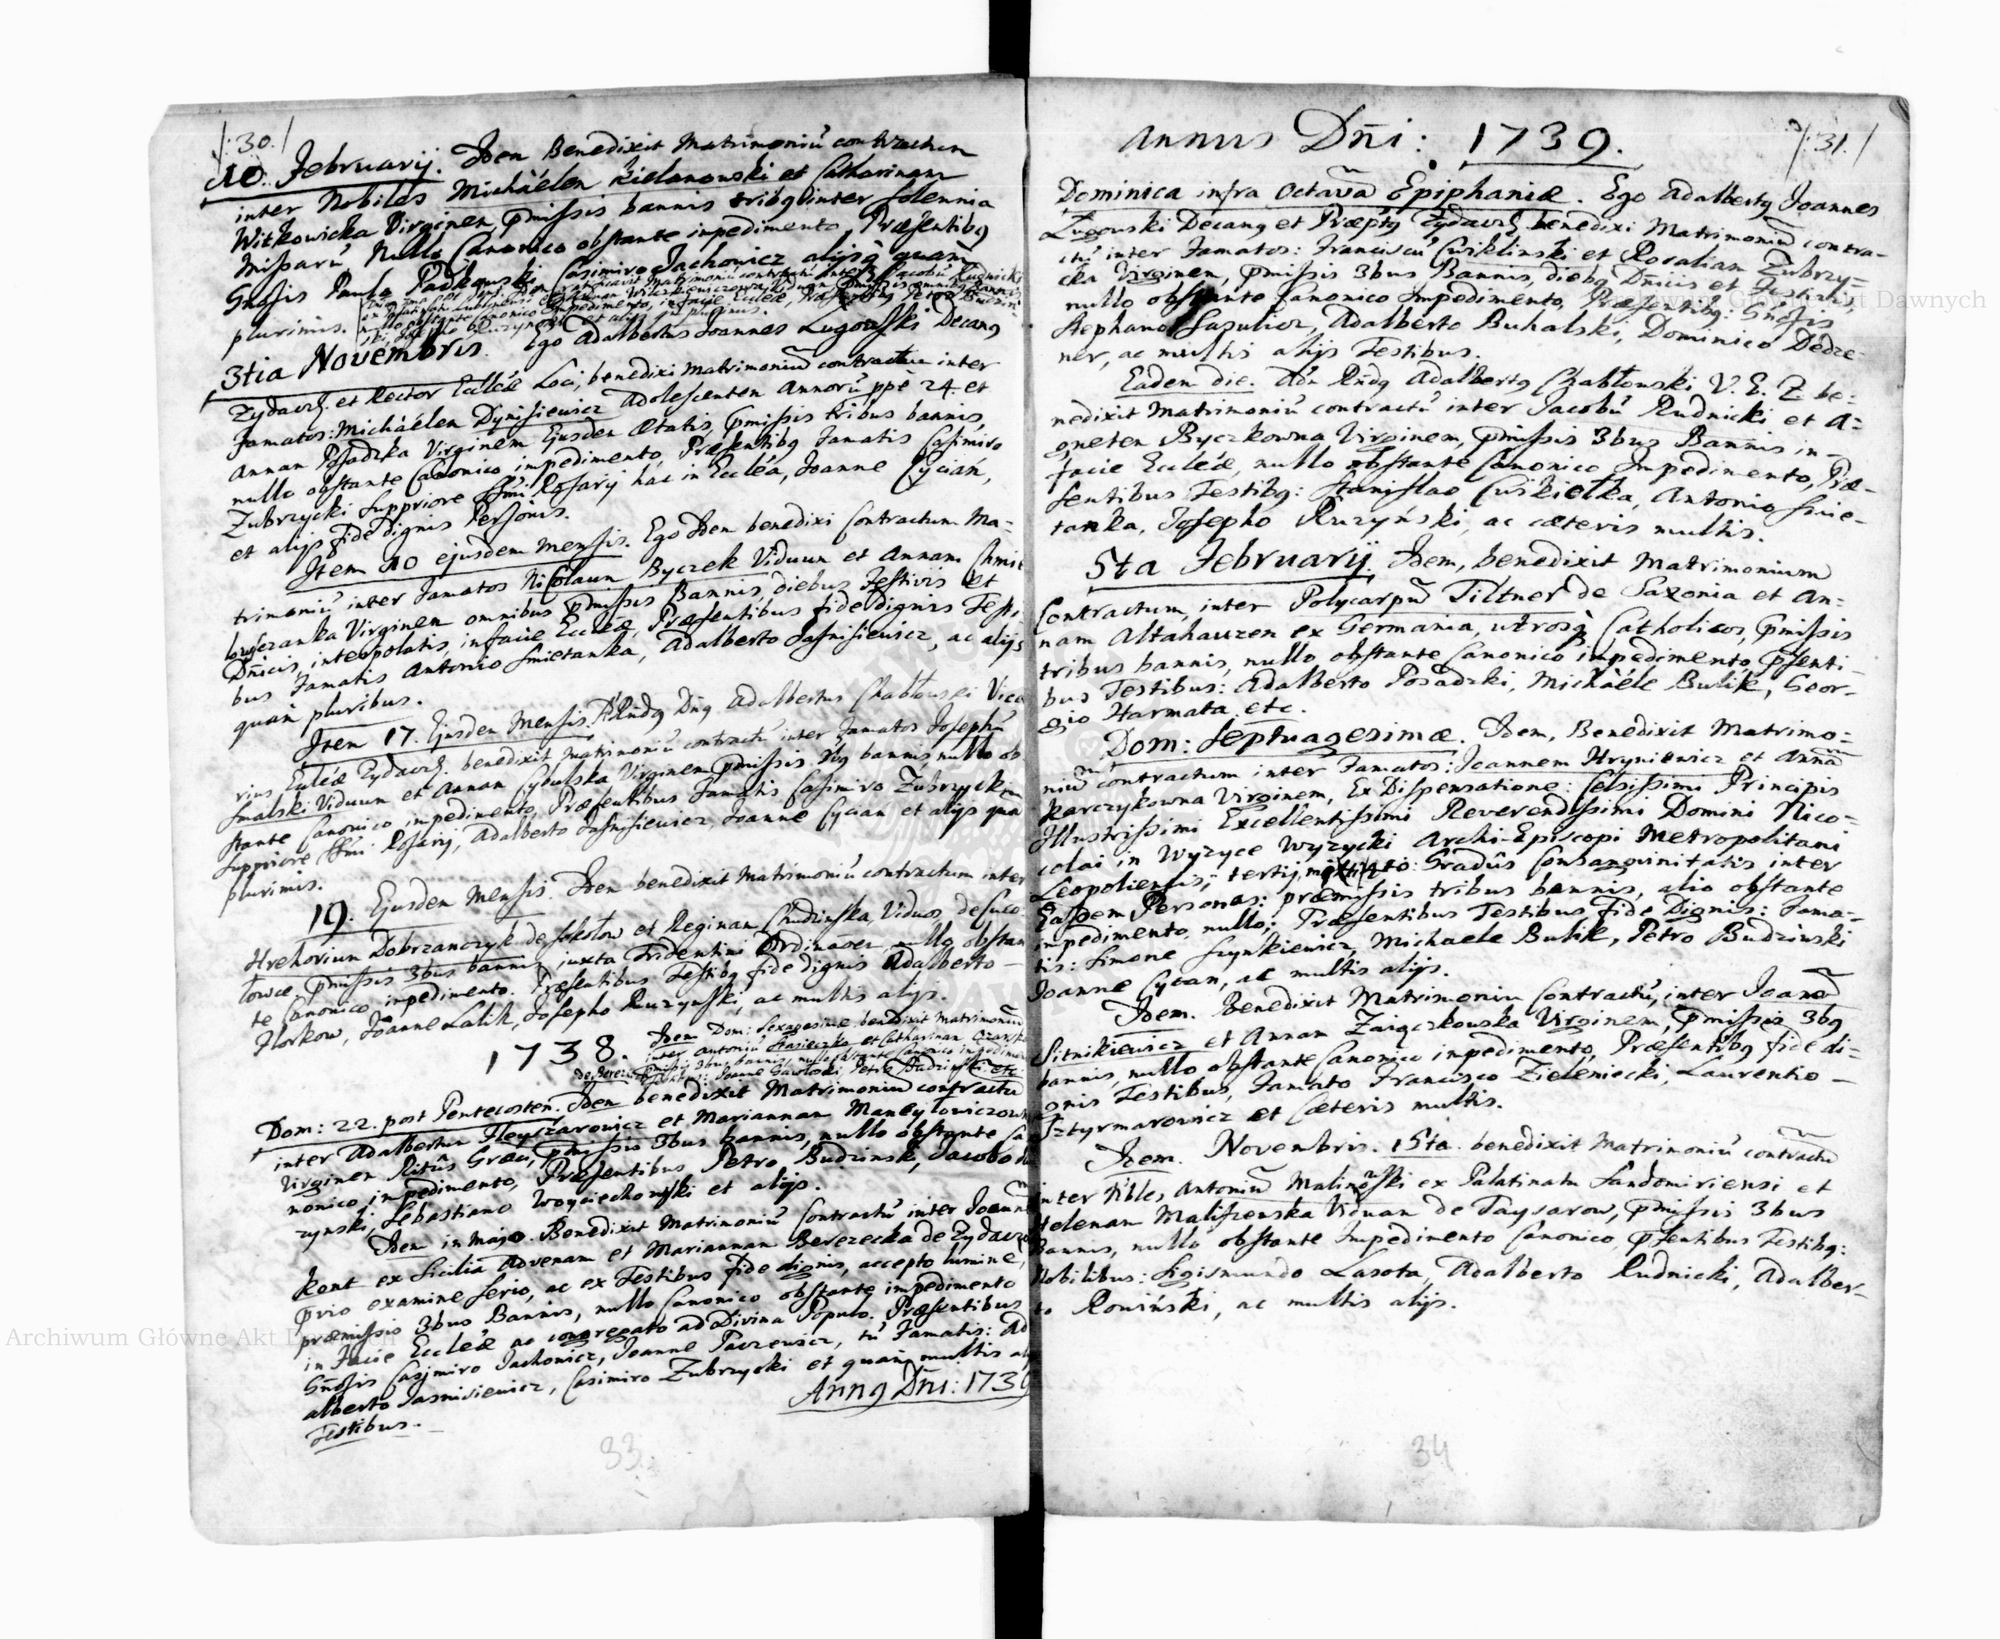 /:30./
10. Februarij. Idem Benedixit Matrimoniũ contractum
inter Nobiles Michäélem Kielanowski et Catharinam
Witkowicka Virginem, pmissis bannis tribq inter solennia
Missarũ Nullo Canonico obstante impedimento, Præsentibq
Gnosis Paulo Padkowski, Casimiro Jachowicz alijsq quam
plurimis.
3tia Novembris. Ego Adalbertus Joannes Ługowski Decanq
Zydacz: et Rector Eccléæ Loci, benedixi Matrimonium contractũ inter
Famatos: Michäélem Dynisiewicz Adolescentem Annorũ ppe 24. et
Annam Posadzka Virginem Ejusdem Ætatis, pmissis tribus bannis,
nullo obstante Canonico impedimento, Præsentibq Famatis Casimiro
Zubrzycki Suppriore SSmi Rosarij hác in Eccléa, Joanne Cycian,
et alijs fide dignis Personis.
Item 10 ejusdem Mensis. Ego Idem benedixi Contractum Ma-
trimoniũ inter Famatos Nicolaum Byczek Viduum et Annam Chmie
lowszanka Virginem omnibus pmissis Bannis, diebus Festivis et
Dñicis, interpolatis, in facie Eccléæ, Præsentibus fide dignis Testi
bus Famatis Antonio Smietanka, Adalberto Jasnisiewicz, ac alijs
quam pluribus.
Item 17. Ejusdem Mensis. ARndq Dnq Adalbertus Chabłowski Vica
rius Eccléæ Zydacz. benedixit Matrimoniũ contractũ inter Famatos Josephũ
Smalski Viduum et Annam Cybulska Virginem pmissis 3bq bannis, nullo ob
stante Canonico impedimento, Præsentibus Famatis Casimiro Zubrzycki
Suppriore SSmi Rosarij, Adalberto Jasnisiewicz, Joanne Cycian et alijs qua
plurimis.
19. Ejusdem Mensis. Idem benedixit Matrimoniũ contractum inter
Hrehorium Dobrzanczyk de Sokołow et Reginam Chudzinska, Viduos, de
łowce, pmissis 3bus bannis, juxta Tridentini Ordinaõem, nullo obstan
te Canonico impedimento. Præsentibus Testibq fide dignis Adalberto —
Florkow, Joanne Lalik, Josepho Ruzynski, ac multis alijs.
1738. Idem Dom: Sexagesimæ benedixit Matrimoniũ
inter Antoniũ et Catharinam
pmissis 3bus bannis, nullo obstante Canonico impedimen
Joanne Petro Budzinski etc.
Dom: 22. post Pentecosten. Idem benedixit Matrimonium contractũ
inter Adalbertum Fleyszarowicz et Mariannam
Virginem Ritûs Græci, pmissis 3bus bannis, nullo obstante Ca
nonico impedimento, Præsentibus, Petro Budzinski, Jacobo
zynski, Sebastiano Woyciechowski et alijs.
Idem in Majo. Benedixit Matrimoniũ Contractũ inter Joannẽ
Kont ex Sicilia Advenam et Mariannam Berezecka de Zydacz
prio examine serio, ac ex Testibus fide dignis, accepto lumine,
præmissis 3bus Bannis, nullo Canonico obstante impedimento
in Facie Eccléæ ac congregato ad Divina Populo. Præsentibus
Gnosis Casimiro Jachowicz, Joanne Paczewicz, tũ Famatis: Ad
alberto Jasnisiewicz, Casimiro Zubrzycki et quam multis
Testibus.
Annq Dñi: 1739
33.
Annus Dñi: 1739.
/:31./
Dominica infra Octavã Epiphaniæ. Ego Adalbertq Joannes
Ługowski Decanq et Præptq Zydacz: benedixi Matrimoniũ contra-
ctũ inter Famatos: Franciscũ Cwiklinski et Rosaliam Zubrzy-
cka Virginem, pmissis 3bus Bannis, diebq Dñicis et Festivis,
nullo obstante Canonico Impedimento, Præsentibq: Gnosis
Stephano Sazulicz, Adalberto Buhalski, Dominico Dedre-
ner, ac multis alijs Testibus.
Eadem die. Adm Rndq Adalbertq Chabłowski V. E. Z. be:
nedixit Matrimoniũ contractũ inter Jacobũ Rudnicki et A:
gneten Byczkowna, Virginem, pmissis 3bus Bannis in-
facie Eccléæ, nullo obstante Canonico Impedimento, Præ-
sentibus Testibq: Stanislao Cwikiełka, Antonio Smie-
tanka, Josepho Ruzyński, ac cæteris multis.
5ta Februarij. Idem, benedixit Matrimonium
Contractum, inter Polycarpũ Tiltner de Saxonia et An:
nam Altahauzen ex Germania, utrosq Catholicos, pmissis
tribus bannis, nullo obstante Canonico impedimento, psenti-
bus Testibus: Adalberto Posadzki, Michäéle Bulik, Geor-
gio Harmata etc.
Dom: Septuagesimæ. Idem, Benedixit Matrimo:
niũ contractum inter Famatos: Joannem Hryniewicz et Annã
Karczykowna Virginem, Ex Dispensatione: Celsissimi Principis
Illustrissimi Excellentissimi Reverendissimi Domini Nico-
colai in Wyzyce Wyzycki Archi-Episcopi Metropolitani
Leopoliensis, tertij Gradûs Consanguinitatis inter
Easdem Personas: præmissis tribus bannis, alio obstante
impedimento nullo; Præsentibus Testibus fide Dignis: Fama-
tis: Simone Szynkiewicz, Michaele Bulik, Petro Budzinski
Joanne Cycan, ac multis alijs.
Idem. Benedixit Matrimoniu Contractũ, inter Joanẽ
Sitnikiewicz et Annam Zaięczkowska Virginem, pmissis 3bq
bannis, nullo obstante Canonico impedimento, Præsentibq fide di-
gnis Testibus, Famato Francisco Zieleniecki, Laurentio —
Sztyrmarowicz et Cæteris multis.
Idem. Novembris. 15ta. benedixit Matrimoniũ contractũ
inter Nbles Antoniũ Malinowski ex Palatinatu Sandomiriensi et
Helenam Maliszewska Viduam de Taysarow, pmissis 3bus
Bannis, nullo obstante Impedimento Canonico, psentibus Testibq:
Nobilibus: Sigismundo Lasota, Adalberto Rudnicki, Adalber-
to Rowiński, ac multis alijs.
34
Archiwum Główne Akt Dawnych
Archiwum Główne Akt Dawnych